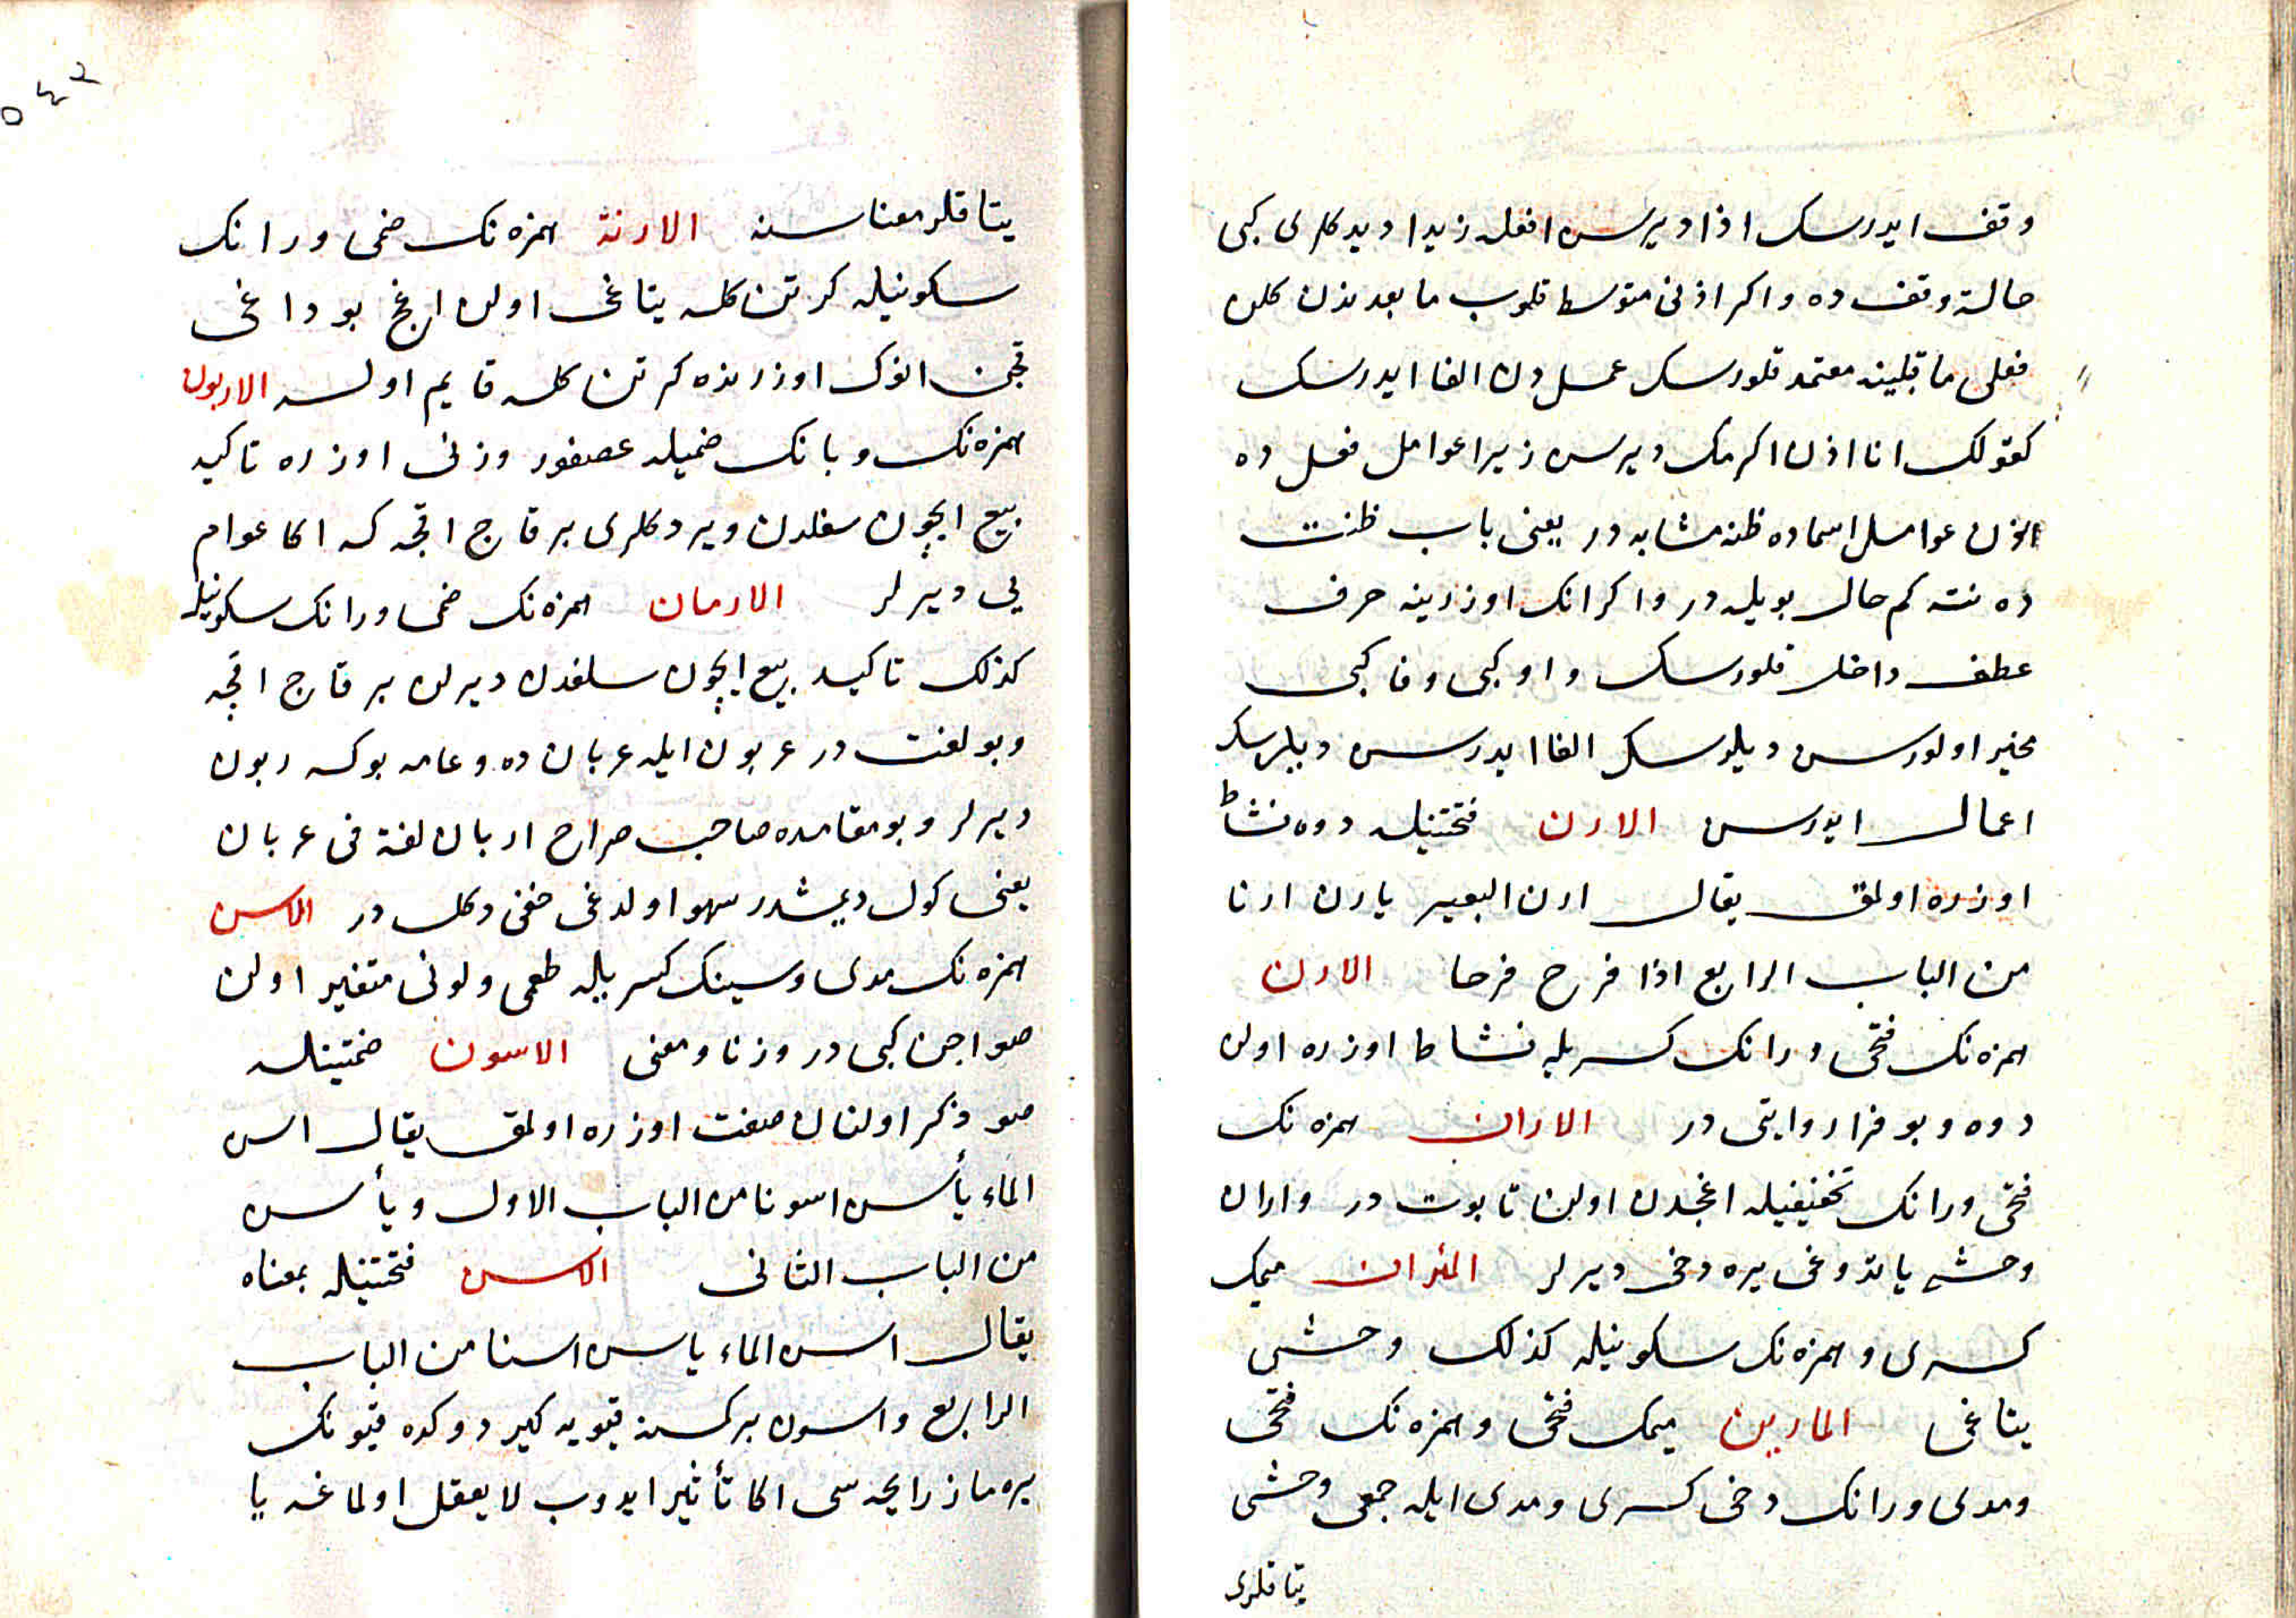 وقف ايدرسك اذا ديرسن افعله زيدا ديدكلرى كبى
حالة وقف ده واكر اذنى متوسط قلوب ما بعدندن كلن
فعلى ما قبلينه معتمد قلورسك عمل دن الغا ايدرسك
كقولك انا اذن اكرمك ديرسن زيرا عوامل فعل ده
اذن عوامل اسماده ظنه مشابه در يعنى باب ظنت
ده نته كم حال بويله در واكر انك اوزرينه حرف
عطف داخل قلورسك واو كبى وفا كبى
مخير اولورسن ديلرسك الغا ايدرسن ديلرسك
اعمال ايدرسن الارن فتحتينله دوه نشاط
اوزره اولمق يقال ارن البعير يارن ارنا
من الباب الرابع اذا فرح فرحا الارن
همزه نك فتحى ورانك كسريله نشاط اوزره اولن
دوه وبو فرا روايتى در الاران همزه نك
فتحى ورانك تخفيفيله اغجدن اولن تابوت در واران
وحشى ياتدوغى يره دخى ديرلر المئران ميمك
كسرى وهمزه نك سكونيله كذلك وحشى
يتاغى المارين ميمك فتحى وهمزه نك فتحى
ومدى ورانك دخى كسرى ومدى ايله جمعى وحشى
يتاقلرى
٥٤٢
يتاقلر معناسنه الارنة همزه نك ضمى ورانك
سكونيله كرتن كله يتاغى اولن ارنج بوداغى
قچن انوك اوزرنده كرتن كله قايم اوله الاربون
همزه نك وبانك ضميله عصفور وزنى اوزره تاكيد
بيع ايچون سفلدن ويردكلرى بر قاج اقچه كه اكا عوام
پى ديرلر الاربان همزه نك ضمى ورانك سكونيله
كذلك تاكيد بيع ايچون سلفدن ديرلن بر قاج اقچه
وبو لغت در عربون ايله عربان ده وعامه بوكه ربون
ديرلر وبو مقامده صاحب صراح اربان لغة فى عربان
يعنى كول ديمشدر سهو اولدغى خفى دكل در الاسن
همزه نك مدى وسينك كسريله طعمى ولونى متغير اولن
صو اجن كبى در وزنا ومعنى الاسون ضمتينله
صو ذكر اولنان صفت اوزره اولمق يقال اسن
الماء يأسن اسونا من الباب الاول ويأسن
من الباب الثانى الاسن فتحتينله بمعناه
يقال اسن الماء ياسن اسنا من الباب
الرابع واسون بر كمسنه قيويه كيردوكده قيونك
يره ماز رايحه سى اكا تأثير ايدوب لا يعقل اولماغه يا